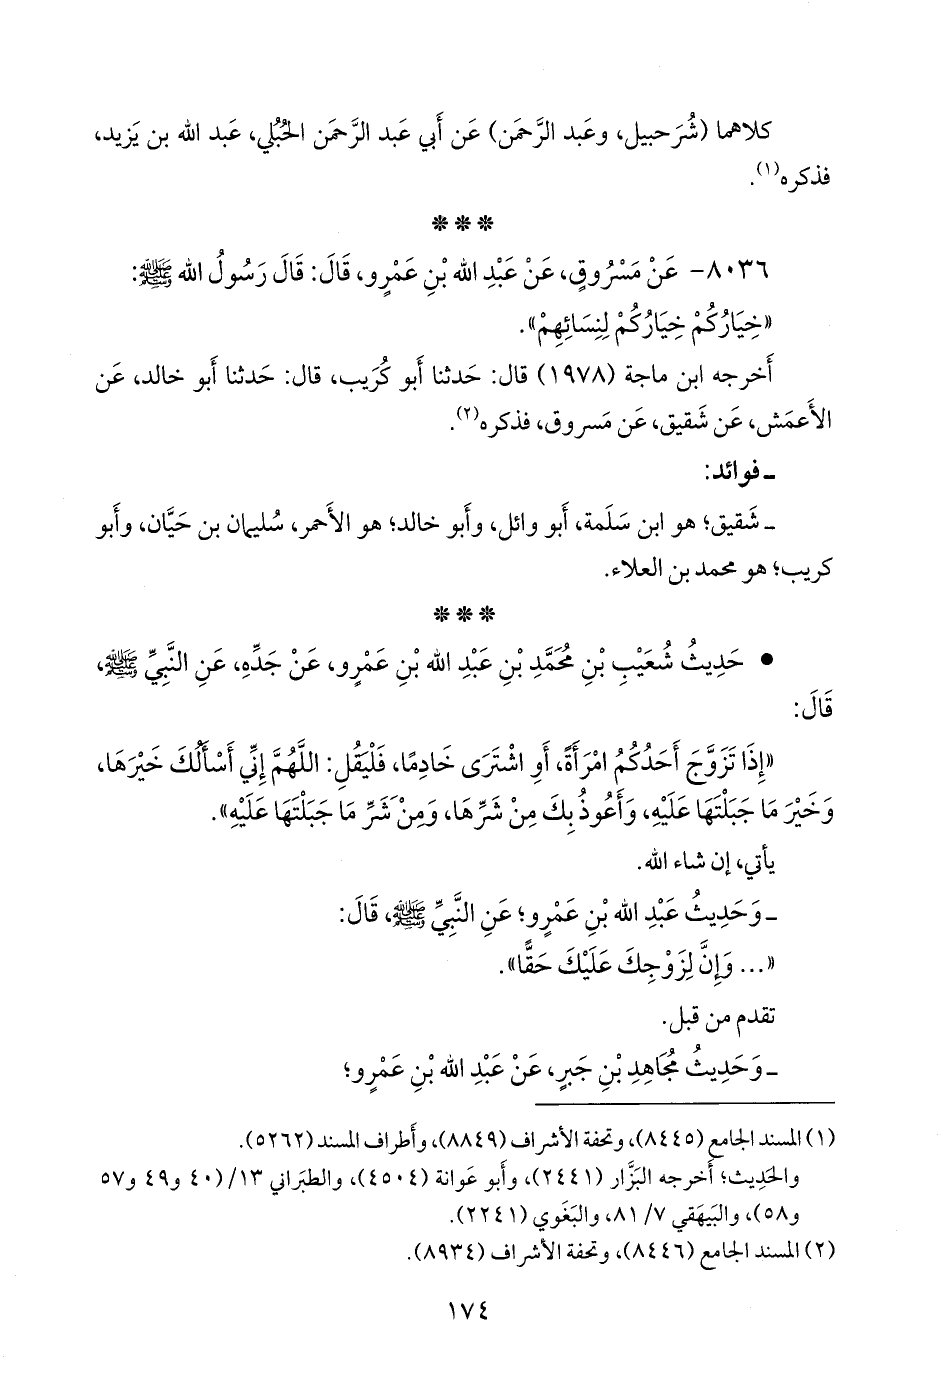 كلاهما (شُرَحبيل، وعبد الرَّحمَن) عَن أَبي عَبد الرَّحمَن الحُبُلي، عَبد الله بن يَزيد،
فذكره(١).
***
٨٠٣٦- عَنْ مَسْرُوقٍ، عَنْ عَبْدِ الله بْنِ عَمْرٍو، قَالَ: قَالَ رَسُولُ الله ﷺ:
«خِيَارُكُمْ خِيَارُكُمْ لِنِسَائِهِمْ».
أَخرجه ابن ماجة (١٩٧٨) قال: حَدثنا أَبو كُرَيب، قال: حَدثنا أَبو خالد، عَن
الأَعمَش، عَن شَقيق، عَن مَسروق، فذكره(٢).
ـ فوائد:
ـ شَقيق؛ هو ابن سَلَمة، أَبو وائل، وأَبو خالد؛ هو الأَحمر، سُليمان بن حَيَّان، وأَبو
كريب؛ هو محمد بن العلاء.
***
• حَدِيثُ شُعَيْبِ بْنِ مُحَمَّدِ بْنِ عَبْدِ الله بْنِ عَمْرٍو، عَنْ جَدِّهِ، عَنِ النَّبِيِّ ﷺ،
قَالَ:
«إِذَا تَزَوَّجَ أَحَدُكُمُ امْرَأَةً، أَوِ اشْتَرَى خَادِمًا، فَلْيَقُلِ: اللَّهُمَّ إِنِّي أَسْأَلُكَ خَيْرَهَا،
وَخَيْرَ مَا جَبَلْتَهَا عَلَيْهِ، وَأَعُوذُ بِكَ مِنْ شَرِّهَا، وَمِنْ شَرِّ مَا جَبَلْتَهَا عَلَيْهِ».
يأتي، إن شاء الله.
ـ وَحَدِيثُ عَبْدِ الله بْنِ عَمْرٍو؛ عَنِ النَّبِيِّ ﷺ، قَالَ:
«... وَإِنَّ لِزَوْجِكَ عَلَيْكَ حَقًّا».
تقدم من قبل.
ـ وَحَدِيثُ مُجَاهِدِ بْنِ جَبرٍ، عَنْ عَبْدِ الله بْنِ عَمْرٍو؛
(١) المسند الجامع (٨٤٤٥)، وتحفة الأشراف (٨٨٤٩)، وأَطراف المسند (٥٢٦٢).
والحَديث؛ أَخرجه البَزَّار (٢٤٤١)، وأَبو عَوانة (٤٥٠٤)، والطبَراني ١٣/(٤٠ و٤٩ و٥٧
و٥٨)، والبَيهَقي ٧/ ٨١، والبَغَوي (٢٢٤١).
(٢) المسند الجامع (٨٤٤٦)، وتحفة الأشراف (٨٩٣٤).
١٧٤